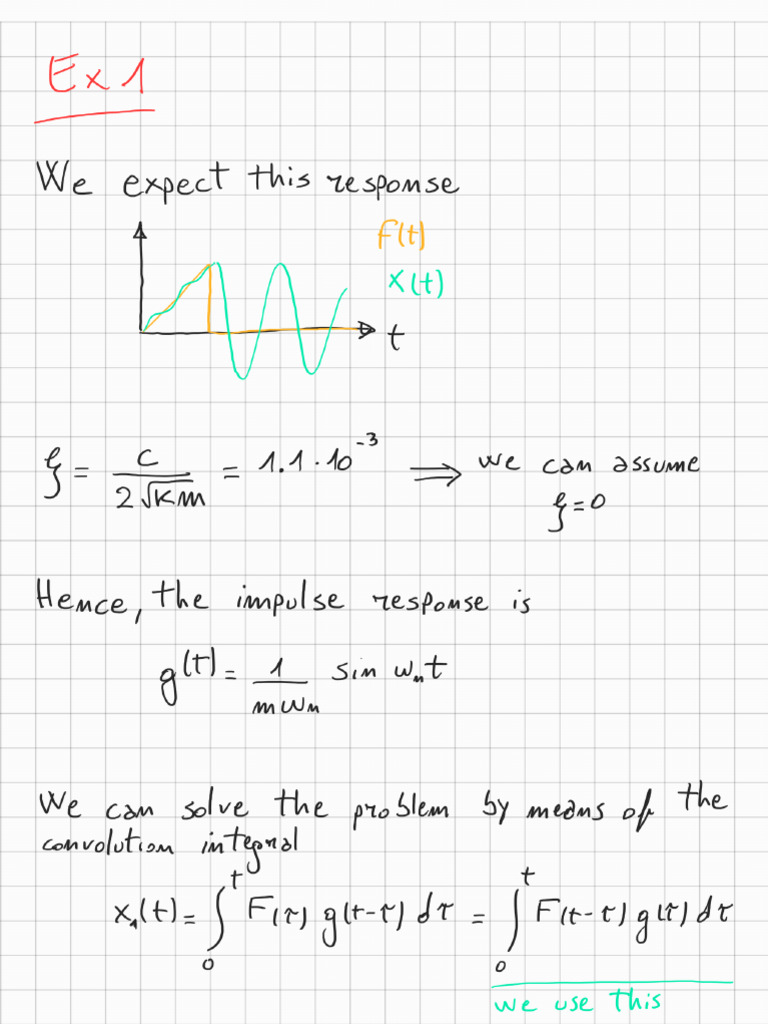 Ex 1
We expect this response
F(t)
x(t)
t
ξ = c / (2√km) = 1.1 · 10⁻³ ⟹ we can assume
ξ = 0
Hence, the impulse response is
g(t) = 1 / (mωₙ) sin ωₙt
We can solve the problem by means of the
convolution integral
x₁(t) = ∫₀ᵗ F(τ) g(t-τ) dτ = ∫₀ᵗ F(t-τ) g(τ) dτ
we use this